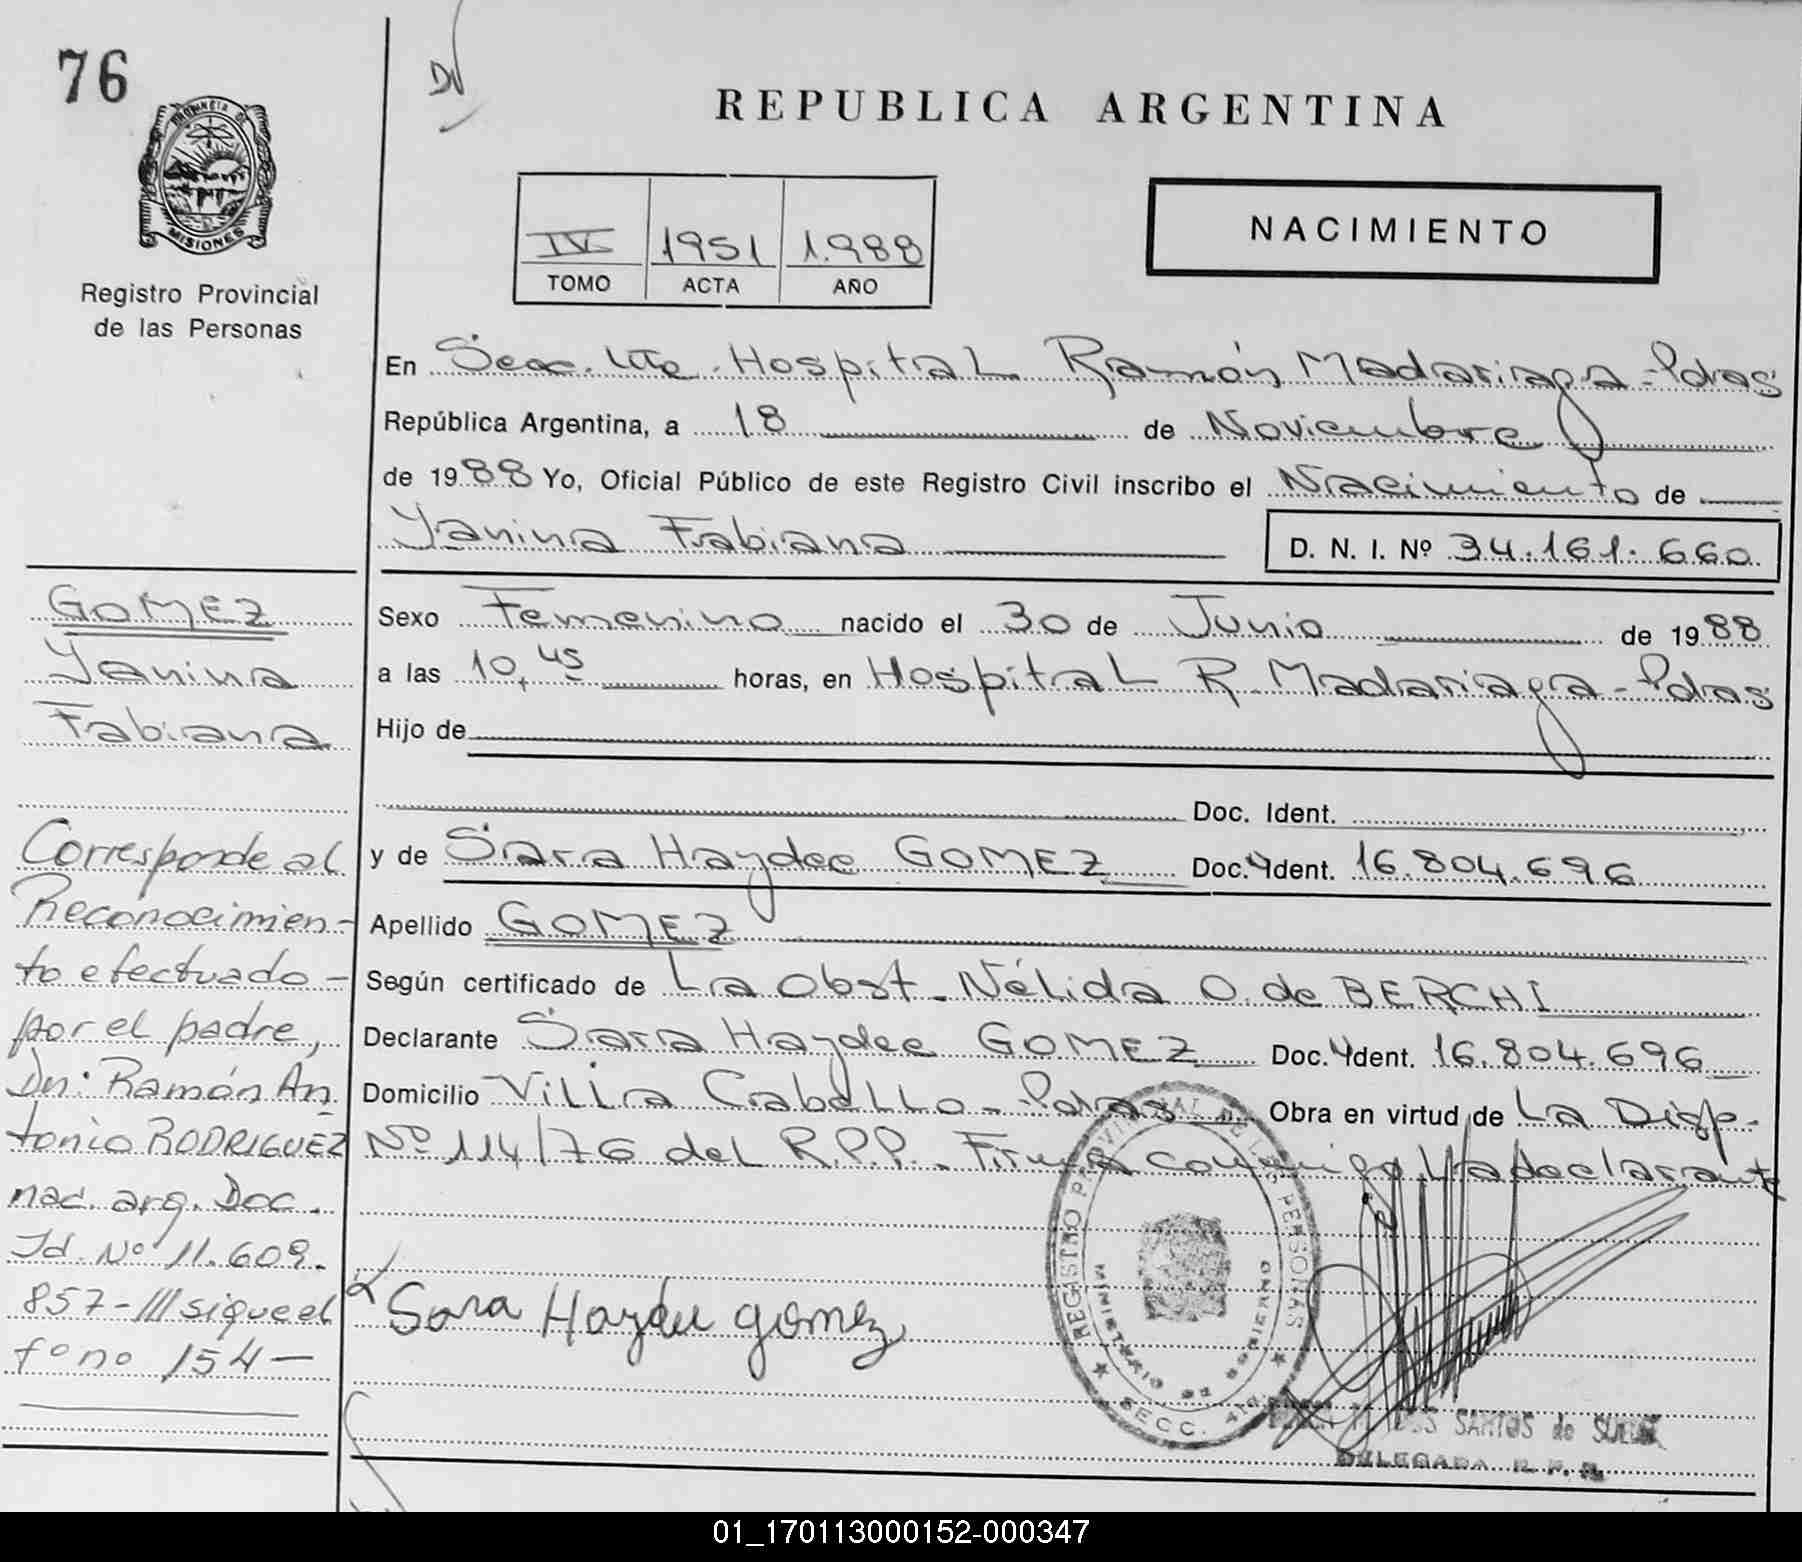 76
DV
PROVINCIA DE
MISIONES
Registro Provincial
de las Personas
REPUBLICA ARGENTINA
IV 1951 1.988
TOMO ACTA AÑO
NACIMIENTO
En Secc. 4ta. Hospital Ramón Madariaga - Pdas
República Argentina, a 18 de Noviembre
de 1988 Yo, Oficial Público de este Registro Civil inscribo el Nacimiento de
Yanina Fabiana
D. N. I. Nº 34.161.660
Sexo Femenino nacido el 30 de Junio de 1988
a las 10,45 horas, en Hospital R. Madariaga - Pdas
Hijo de
Doc. Ident.
y de Sara Haydee GOMEZ Doc. Ident. 16.804.696
Apellido GOMEZ
Según certificado de La Obst. Nélida O. de BERCHI
Declarante Sara Haydee GOMEZ Doc. Ident. 16.804.696
Domicilio Villa Cabello - Pdas Obra en virtud de La Disp.
Nº 114/76 del R.P.P. Firma conmigo La declarante
Sara Haydee gomez
REGISTRO PROVINCIAL DE LAS PERSONAS
MINISTERIO DE GOBIERNO
SECC. 4ta
DOS SANTOS de
DELEGADA R. P. P.
GOMEZ
Yanina
Fabiana
Corresponde al
Reconocimien-
to efectuado -
por el padre,
Dn. Ramón An
tonio RODRIGUEZ
nac. arg. Doc.
Id. Nº 11.609.
857 - /// sigue el
fº nº 154 -
01_170113000152-000347